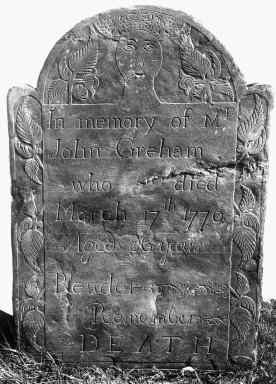 In memory of Mr
John Greham
who died
March 17th 1770
Aged
Reader
Remember
DEATH